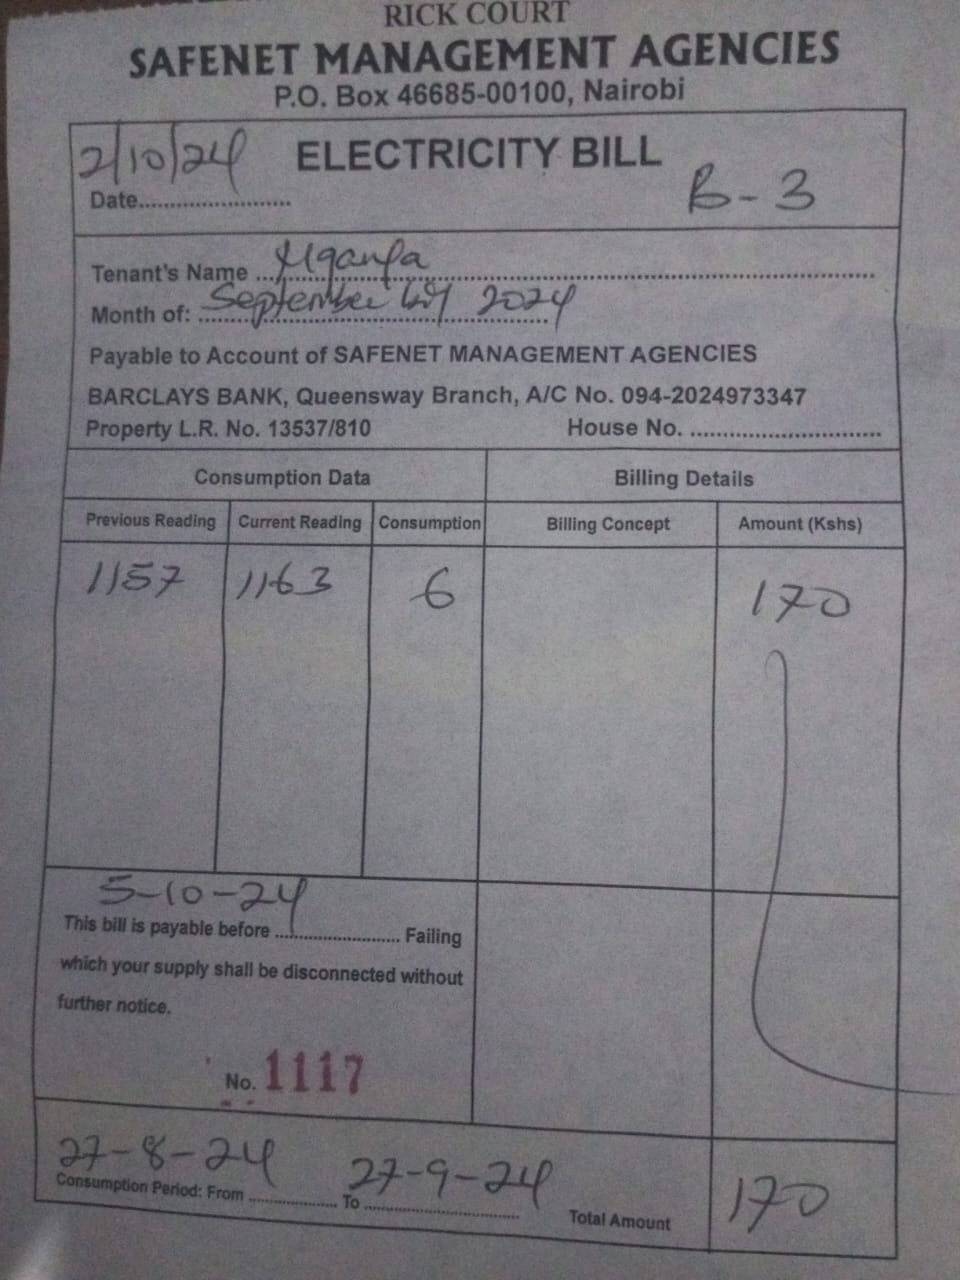 RICK COURT
SAFENET MANAGEMENT AGENCIES
P.O. Box 46685-00100, Nairobi
2/10/24 ELECTRICITY BILL
B-3
Date........................
Tenant's Name ...
Month of: September 2024
Payable to Account of SAFENET MANAGEMENT AGENCIES
BARCLAYS BANK, Queensway Branch, A/C No. 094-2024973347
Property L.R. No. 13537/810 House No. ..............................
Consumption Data Billing Details
Previous Reading Current Reading Consumption Billing Concept Amount (Kshs)
1157 1163 6 170
5-10-24
This bill is payable before ........................ Failing
which your supply shall be disconnected without
further notice.
No. 1117
27-8-24 27-9-24
Consumption Period: From .................. To ................................ Total Amount 170